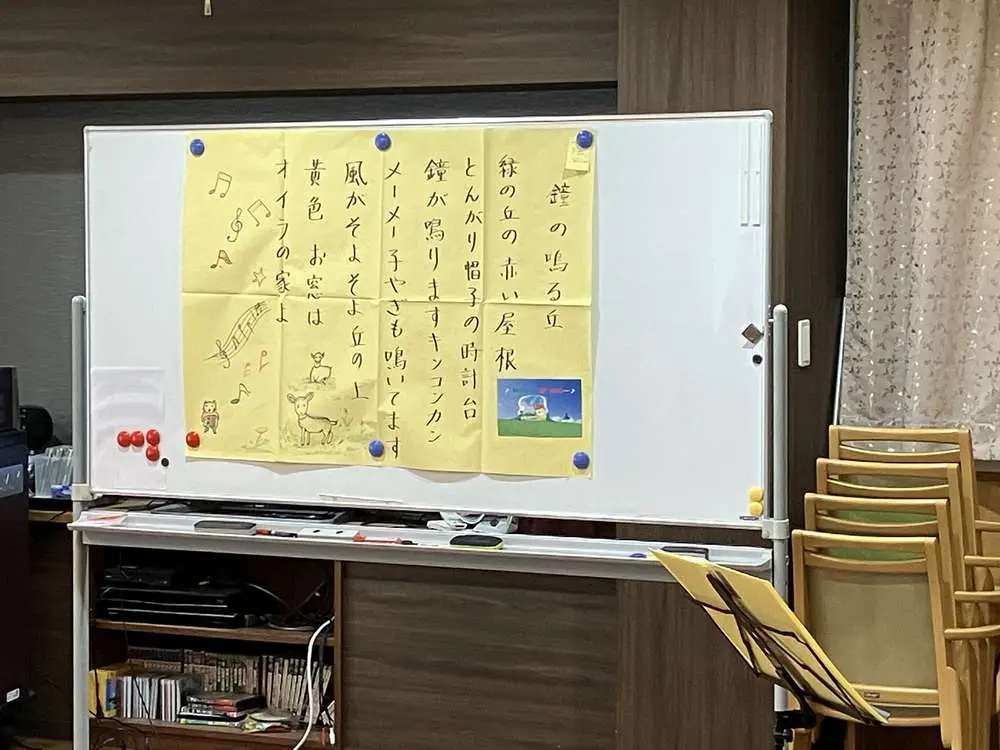 鐘の鳴る丘
緑の丘の赤い屋根
とんがり帽子の時計台
鐘が鳴りますキンコンカン
メーメー子やぎも鳴いてます
風がそよそよ丘の上
黄色 お窓は
オイラの家よ